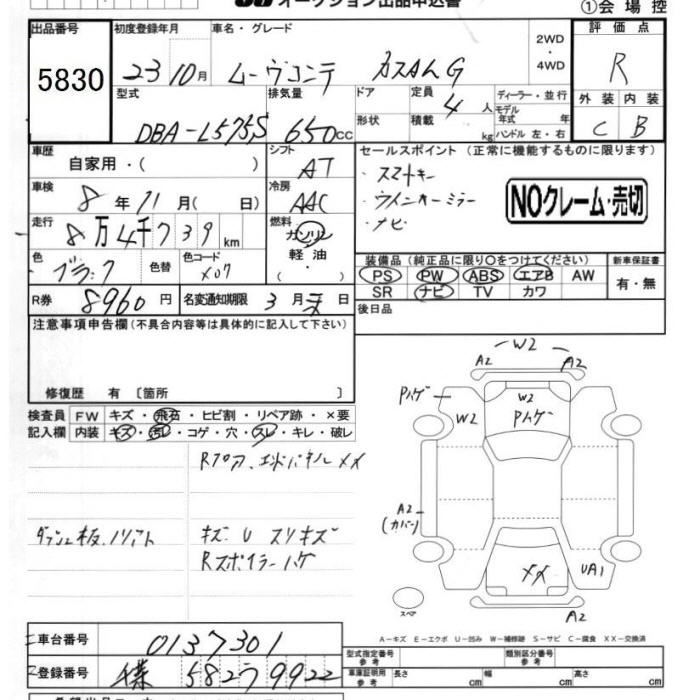 オークション出品申込書
①会場控
出品番号 初度登録年月 車名・グレード 2WD・4WD 評価点
5830 23 10月 ムーヴコンテ カスタムG R
型式 排気量 ドア 定員 4人 ディーラー・並行 外装 内装
DBA-L575S 650cc 形状 積載 kg モデル年式 年 ハンドル 左・右 C B
車歴 自家用・( ) シフト AT セールスポイント (正常に機能するものに限ります)
車検 8年11月( 日) 冷房 AAC ・スマートキー
・ウインカーミラー
・ナビ
NOクレーム・売切
走行 8万4千739km 燃料 ガソリン 軽油・( )
色 ブラック 色替 色コード X07
装備品 (純正品に限り○をつけてください) 新車保証書
PS PW ABS エアB AW 有・無
SR ナビ TV カワ
R券 8960円 名変通知期限 3月 日
後日品
注意事項申告欄 (不具合内容等は具体的に記入して下さい)
修復歴 有〔箇所 〕
検査員記入欄 FW キズ・飛石・ヒビ割・リペア跡・×要
内装 キズ・汚レ・コゲ・穴・スレ・キレ・破レ
Rフロア、エンドパネルメメ
キズ U スリキズ
Rスポイラーハゲ
W2
A2 A2
Pハゲ W2 W2 Pハゲ
A2 (カバー)
メメ UA1
スペア
A2
A-キズ E-エクボ U-凹み W-補修跡 S-サビ C-腐食 XX-交換済
車台番号 0137301
型式指定番号 参考 類別区分番号 参考
登録番号 582 9922
車庫証明用 参考 長さ cm 幅 cm 高さ cm